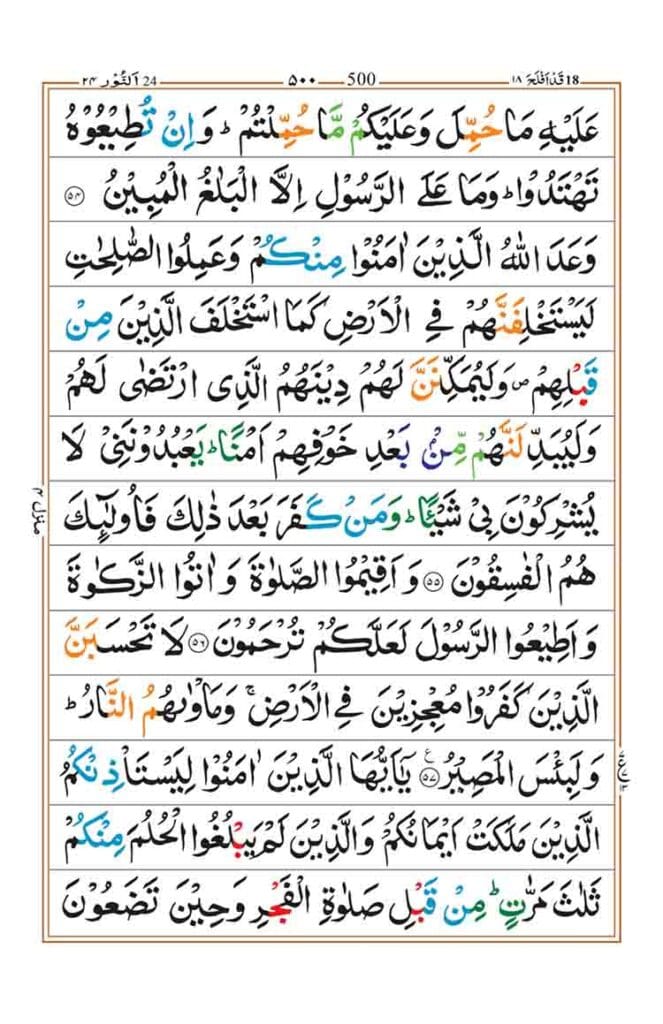 18 قَدۡاَفۡلَحَ ١٨ 500 ۵۰۰ 24 اَلنُّوۡر ٢۴
عَلَيۡهِ مَا حُمِّلَ وَعَلَيۡكُمۡ مَّا حُمِّلۡتُمۡ‌ؕ وَاِنۡ تُطِيۡعُوۡهُ
تَهۡتَدُوۡا‌ؕ وَمَا عَلَى الرَّسُوۡلِ اِلَّا الۡبَلٰغُ الۡمُبِيۡنُ ﴿۵۴﴾
وَعَدَ اللّٰهُ الَّذِيۡنَ اٰمَنُوۡا مِنۡكُمۡ وَعَمِلُوا الصّٰلِحٰتِ
لَيَسۡتَخۡلِفَنَّهُمۡ فِى الۡاَرۡضِ كَمَا اسۡتَخۡلَفَ الَّذِيۡنَ مِنۡ
قَبۡلِهِمۡ وَلَيُمَكِّنَنَّ لَهُمۡ دِيۡنَهُمُ الَّذِى ارۡتَضٰى لَهُمۡ
وَلَيُبَدِّلَنَّهُمۡ مِّنۡۢ بَعۡدِ خَوۡفِهِمۡ اَمۡنًا‌ؕ يَعۡبُدُوۡنَنِىۡ لَا
يُشۡرِكُوۡنَ بِىۡ شَيۡـًٔــا‌ؕ وَمَنۡ كَفَرَ بَعۡدَ ذٰ لِكَ فَاُولٰٓٮِٕكَ
هُمُ الۡفٰسِقُوۡنَ‏ ﴿۵۵﴾ وَاَقِيۡمُوا الصَّلٰوةَ وَ اٰتُوا الزَّكٰوةَ
وَاَطِيۡـعُوا الرَّسُوۡلَ لَعَلَّكُمۡ تُرۡحَمُوۡنَ‏ ﴿۵۶﴾ لَا تَحۡسَبَنَّ
الَّذِيۡنَ كَفَرُوۡا مُعۡجِزِيۡنَ فِى الۡاَرۡضِ‌ۚ وَمَاۡوٰٮهُمُ النَّارُ‌ؕ
وَلَبِئۡسَ الۡمَصِيۡرُ ﴿۵۷﴾ يٰۤـاَيُّهَا الَّذِيۡنَ اٰمَنُوۡا لِيَسۡتَاۡذِنۡكُمُ
الَّذِيۡنَ مَلَكَتۡ اَيۡمَانُكُمۡ وَالَّذِيۡنَ لَمۡ يَـبۡلُغُوا الۡحُـلُمَ مِنۡكُمۡ
ثَلٰثَ مَرّٰتٍ‌ؕ مِنۡ قَبۡلِ صَلٰوةِ الۡفَجۡرِ وَحِيۡنَ تَضَعُوۡنَ
منزل ۴